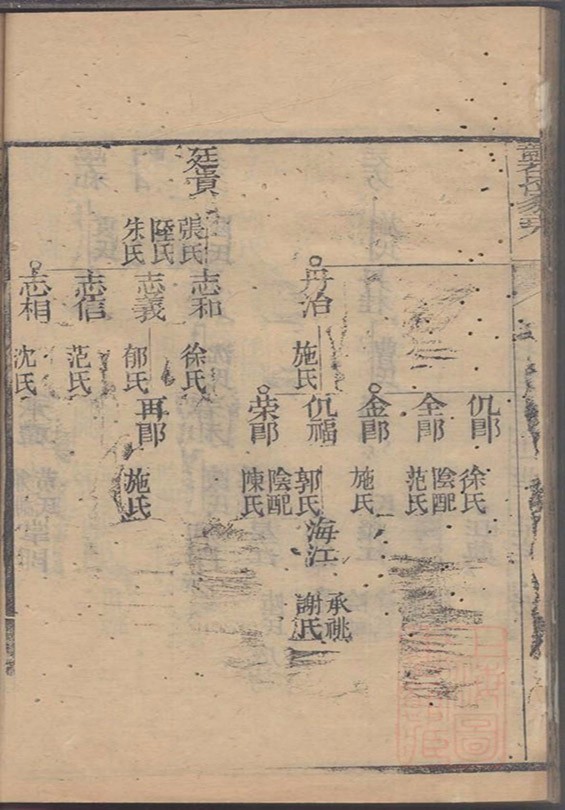 廷貴
張氏
朱氏
丹治
施氏
志和
徐氏
志義
郁氏
志信
范氏
志相
沈氏
仉郎
徐氏
全郎
陰配
范氏
金郎
施氏
仉福
郭氏
荣郎
陰配
陳氏
再郎
施氏
海江
承祧
謝氏